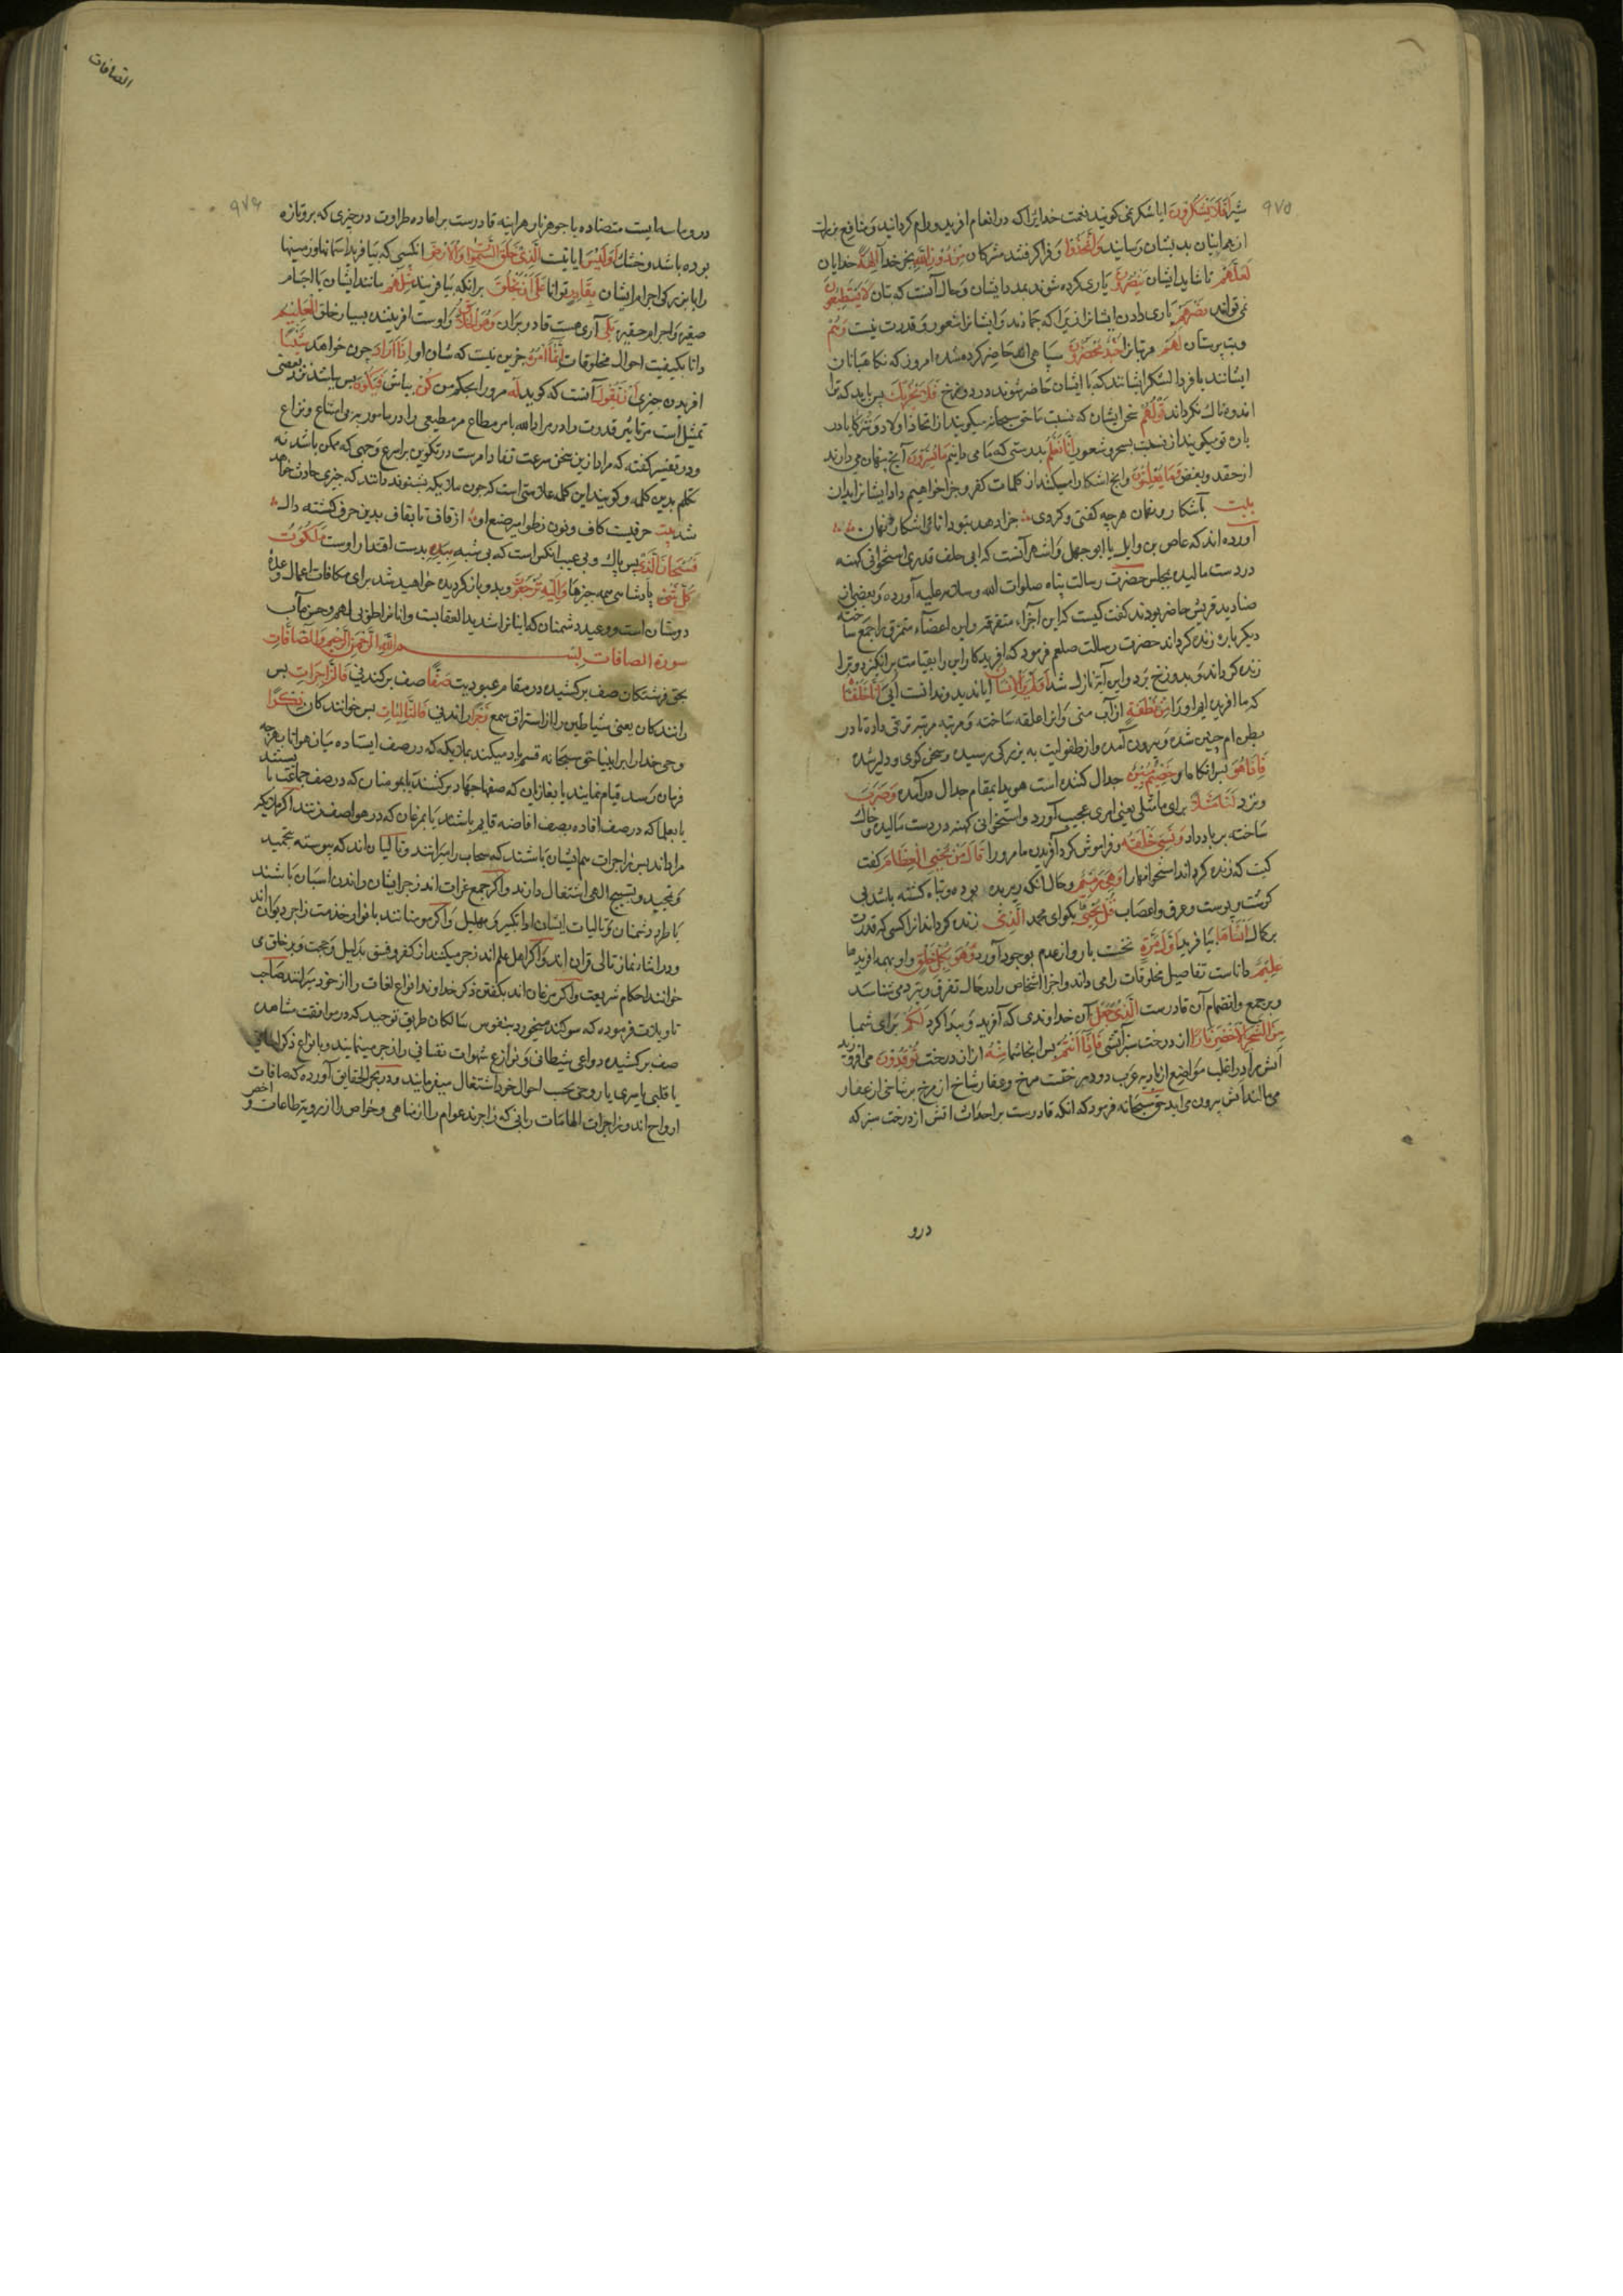 ٩٧٥
شیر اَفَلَا یَشْکُرُونَ ایا شکر نمی کویند نعمت خدایرا که در انعام افرید و رام کردانید و منافع
از هم اینان بدیشان رسانید وَاتَّخَذُوا و فرا کرفتند مشرکان مِنْ دُونِ اللهِ بجز خدا آلِهَةً خدایان
لَعَلَّهُمْ تا شاید ایشان یُنْصَرُونَ یاری کرده شوند بمدد ایشان و حال آنست که بتان لَا یَسْتَطِیعُونَ
نمی توانند نَصْرَهُمْ یاری دادن ایشانرا زیرا که جمادند و ایشانرا شعور و قدرت نیست وَهُمْ
و بت پرستان لَهُمْ مر بتانرا جُنْدٌ مُحْضَرُونَ سپاهی اند حاضر کرده شده امروز که نکاهبانان
ایشانند یا فردا لشکر ایشانند که با ایشان حاضر شوند در دوزخ فَلَا یَحْزُنْكَ پس باید که ترا
اندوهناك نکرداند قَوْلُهُمْ سخن ایشان که نسبت با حق سبحانه میکویند از اتخاذ اولاد و شرکا یا در
باره تو میکویند از نسبت بسحر و شعر اِنَّا نَعْلَمُ بدرستی که ما می دانیم مَا یُسِرُّونَ آنچ پنهان می دارند
از حقد و بغض وَمَا یُعْلِنُونَ و انچ اشکارا میکنند از کلمات کفر و جزا خواهیم داد ایشانرا بدان
بیت باشکار و نهان هرچه کفتی و کردی جزا دهد بتو دانای اشکار و نهان
آورده اند که عاص بن وایل یا ابو جهل و اشهر آنست که ابی خلف قدری استخوانی کهنه
در دست مالیده بمجلس حضرت رسالت پناه صلوات الله و سلامه علیه آورده و بعضی از
صنادید قریش حاضر بودند کفت کیست که این اجزاء متفرقه و این اعضاء متمزق را جمع ساخته
دیکر باره زنده کرداند حضرت رسالت صلعم فرمود که افریدکار این را بقیامت برانکیزد و ترا
زنده کرداند و بدوزخ برد و این آیة نازل شد اَوَلَمْ یَرَ الْاِنْسَانُ ایا ندید و ندانست اُبی اَنَّا خَلَقْنَاهُ
که ما افریدیم او را مِنْ نُطْفَةٍ از آب منی و انرا علقه ساخته و مرتبه مرتبه ترقی داده تا در
بطن ام جنین شده و بیرون آمده و از طفولیت به بزرکی رسیده و سخن کوی و دلیر شده
فَاِذَا هُوَ پس انکاه او خَصِیمٌ مُبِینٌ جدال کننده است هویدا بمقام جدال درآمده وَضَرَبَ
و بزد لَنَا مَثَلًا برای ما مثلی یعنی امری عجیب آورد و استخوانی کهنه در دست مالیده و خاك
ساخته بر باد داد وَنَسِیَ خَلْقَهُ و فراموش کرد آفریدن ما مر ورا قَالَ مَنْ یُحْیِی الْعِظَامَ کفت
کیست که زنده کرداند استخوانها را وَهِیَ رَمِیمٌ و حال انکه ریزیده بوده و تباه کشته باشد بی
کوشت و پوست و عرق و اعصاب قُلْ یُحْیِیهَا بکوی ای محمد الَّذِی زنده کرداند انرا کسی که قدرت
بر کمال اَنْشَاَهَا بیافرید اَوَّلَ مَرَّةٍ نخست بار و از عدم بوجود آورد وَهُوَ بِکُلِّ خَلْقٍ و او بهمه افریدها
عَلِیمٌ داناست تفاصیل مخلوقات را می داند و اجزا اشخاص را در حال تفرق و تبدد می شناسد
و بر جمع و انضمام آن قادرست الَّذِی جَعَلَ آن خداوندی که آفرید و پیدا کرد لَکُمْ برای شما
مِنَ الشَّجَرِ الْاَخْضَرِ نَارًا از درخت سبز آتشی فَاِذَا اَنْتُمْ پس انجا شما مِنْهُ از ان درخت تُوقِدُونَ می افروزید
اتش مراد در اغلب مواضع از بادیه عرب دو درختست مرخ و عفار شاخ از مرخ بر شاخی از عفار
می مالند آتش بیرون می اید حق سبحانه فرمود که انکه قادرست بر احداث اتش از درخت سبز که
درو
الصافات
٩٧٦
در و ماء است متضاده با جوهر نار هراینه قادرست بر اعاده طراوت در چیزی که تروتازه
بوده باشد و خشك اَوَلَیْسَ ایا نیست الَّذِی خَلَقَ السَّمٰوَاتِ وَالْاَرْضَ انکسی که بیافرید اسمانها و زمینها
را با بزرکی اجرام ایشان بِقَادِرٍ توانا عَلٰی اَنْ یَخْلُقَ برانکه بیافریند مِثْلَهُمْ مانند ایشان با اجسام
صغیره و اجرام حقیره بَلٰی آری هست قادر بران وَهُوَ الْخَلَّاقُ و اوست افریننده بسیار خلق الْعَلِیمُ
دانا بکیفیت احوال مخلوقات اِنَّمَا اَمْرُهُ جزین نیست که شان او اِذَا اَرَادَ چون خواهد شَیْئًا
افریدن چیزی اَنْ یَقُولَ آنست که کوید لَهُ مر ورا بحکم من کُنْ بباش فَیَکُونُ پس باشد نزد بعضی
تمثیل است مر تاثیر قدرت را در مراد الله بامر مطاع مر مطیعی را در مامور به بی امتناع و نزاع
و در تفسیر کفته که مراد ازین سخن سرعت نفاذ امرست در تکوین بر اسرع وجهی که ممکن باشد نه
تکلم بدین کلمه و کویند این کلمه علامتی است که چون ملایکه بشنوند دانند که چیزی حادث خواهد
شد بیت حرفیست کاف و نون ز طوامیر صنع او از قاف تا بقاف بدین حرف کشته دال
فَسُبْحَانَ الَّذِی پس پاك و بی عیب انکس است که بی شبه بِیَدِهِ بدست اقتدار اوست مَلَکُوتُ
کُلِّ شَیْءٍ پادشاهی همه چیزها وَاِلَیْهِ تُرْجَعُونَ و بدو باز کردیده خواهید شد برای مکافات اعمال و وعدهٔ
دوستان است و وعید دشمنان که اینانرا شدید العقابست و انانرا طوبی لهم و حسن مآب
سورة الصافات بسم الله الرحمن الرحیم وَالصَّافَّاتِ
بحق فرشتکان صف برکشیده در مقام عبودیت صَفًّا صف برکشیدنی فَالزَّاجِرَاتِ پس
رانندکان یعنی شیاطین را از استراق سمع زَجْرًا راندنی فَالتَّالِیَاتِ پس خوانندکان ذِکْرًا
وحی خدا را بر انبیا حق سبحانه قسم یاد میکند بملایکه که در صف ایستاده میان هوا تا بهرچه
فرمان رسد قیام نمایند یا بغازیان که صفهای جهاد برکشند یا بمومنان که در صف جماعت بایستند
یا بعلما که در صف افاده بصف افاضه قایم باشند یا بمرغان که در هوا صف زنند اکر ملایکه
مراد اند پس زاجرات هم ایشان باشند که سحاب را میرانند و تالیان اند که پیوسته بتحمید
و تمجید و تسبیح الهی اشتغال دارند و اکر جمع غزات اند زجر ایشان راندن اسبان باشند
یا طرد دشمنان و تالیات ایشان اند بتکبیر و تهلیل و اکر مومنانند بانوار خدمت زاجر دیوان اند
و در اثناء نماز تالی قران اند و اکر اهل علم اند زجر میکنند از کفر و فسق بدلیل و حجت و بر خلق می
خوانند احکام شریعت و اکر مرغان اند بکفتن ذکر خداوند انواع افات را از خود میرانند صاحب
تاویلات فرموده که سوکند میخورد بنفوس سالکان طریق توحید که در مواقفت مشاهده
صف برکشیده دواعی شیطانی و نوازع شهوات نفسانی را زجر مینمایند و بانواع ذکر لسانی
یا قلبی یا سری یا روحی بحسب احوال خود اشتغال میفرمایند و در بحر الحقایق آورده که صافات
ارواح اند و زاجرات الهامات ربانی که زاجرند عوام را از مناهی و خواص را از رویت طاعات و اخص